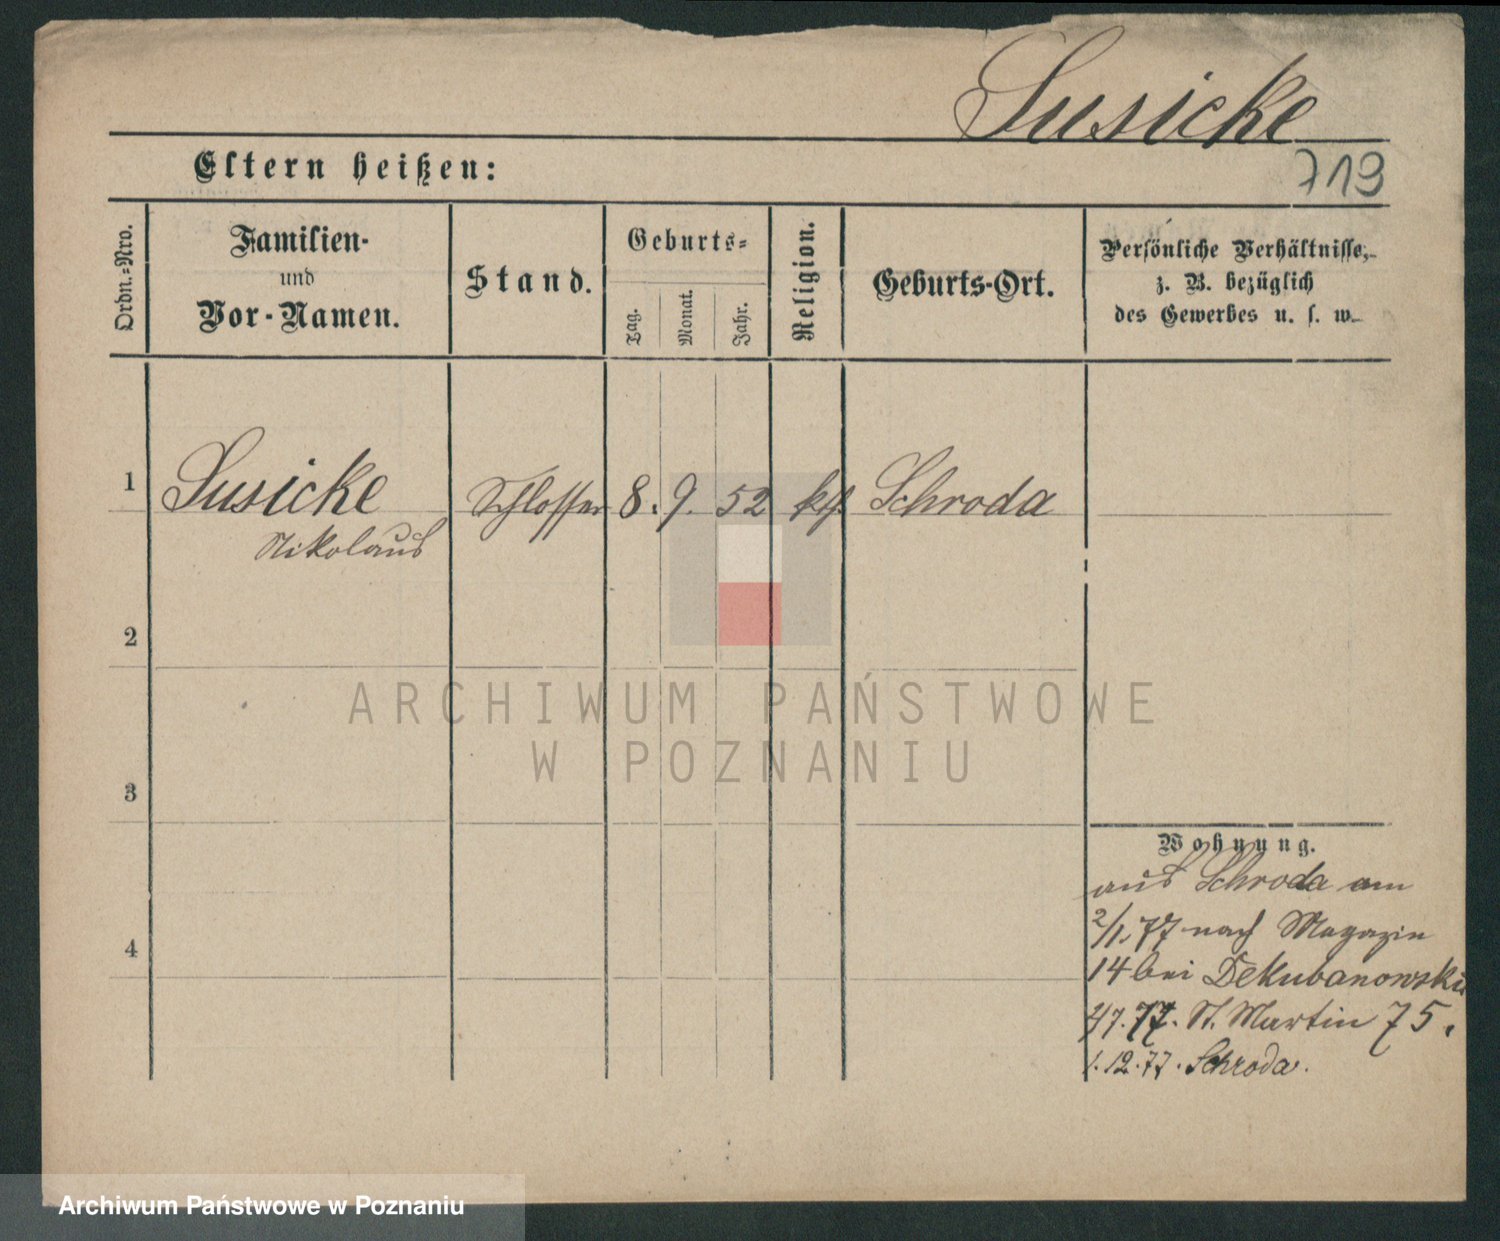 Susicke
Eltern heißen:
719
Ordn.=Nro.
Familien-
und
Vor-Namen.
Stand.
Geburts=
Tag.
Monat.
Jahr.
Religion.
Geburts-Ort.
Persönliche Verhältnisse,
z. B. bezüglich
des Gewerbes u. s. w.
1
Susicke
Nikolaus
Schlosser
8.
9.
52
kth.
Schroda
2
3
4
Wohnung.
aus Schroda am
2/1.77 nach Magazin
14 bei Dekubanowski
2/7.77. St. Martin 75.
1.12.77. Schroda.
ARCHIWUM PAŃSTWOWE
W POZNANIU
Archiwum Państwowe w Poznaniu